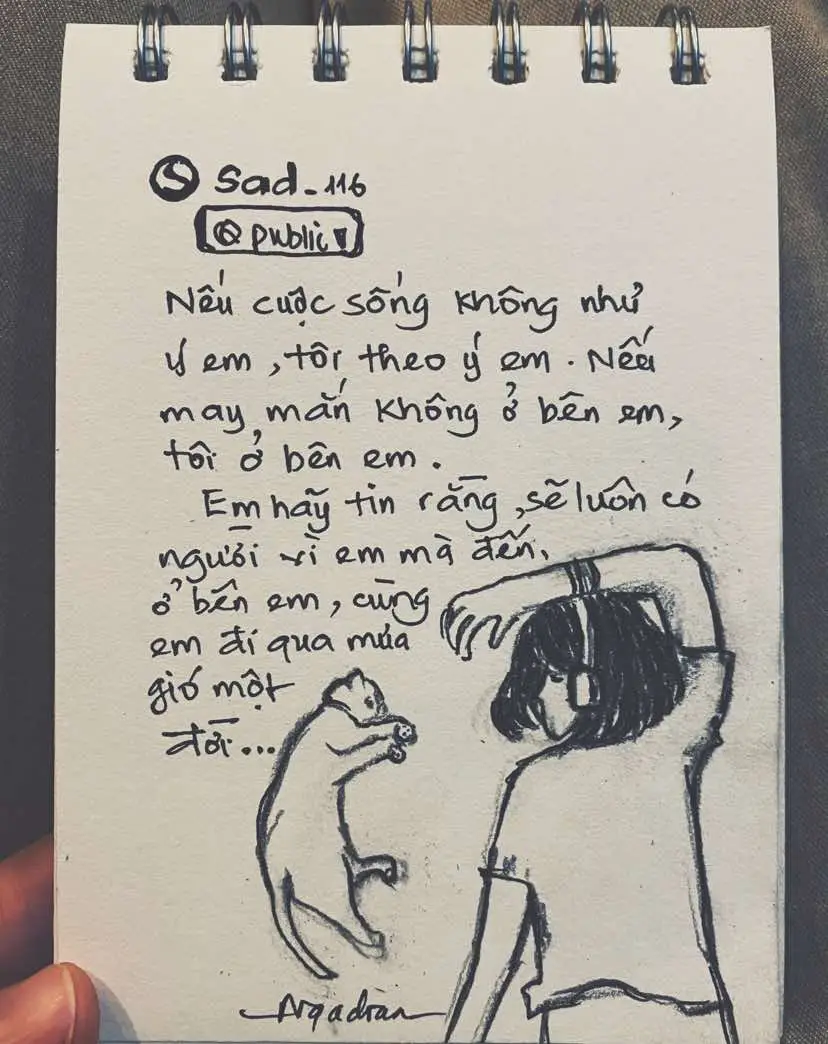 S Sad_116
public
Nếu cuộc sống không như
ý em, tôi theo ý em. Nếu
may mắn không ở bên em,
tôi ở bên em.
Em hãy tin rằng, sẽ luôn có
người vì em mà đến,
ở bên em, cùng
em đi qua mùa
gió một
đời...